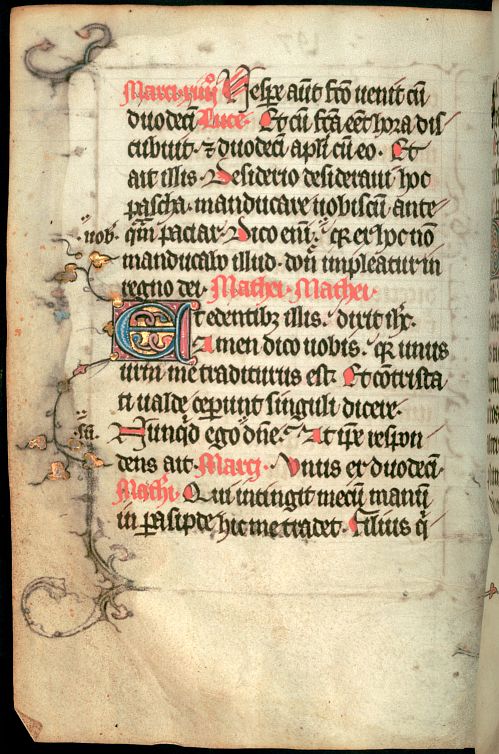 Marci xiiij Vespe aut fco uenit cu
duodeci Luce. Et cu fca eet hora dis
cubuit. ⁊ duodeci apli cu eo. Et
ait illis. Desiderio desideraui hoc
pascha. manducare uobiscu ante
qm paciar. Dico eni. uob. qr ex hoc no
manducabo illud. don impleatur in
regno dei. Mathei. Mathei.
Et edentibz illis. dixit ihc.
Amen dico uobis. qr unus
urm me traditurus est. Et contrista
ti ualde ceperunt singuli dicere.
Nunqd ego dne. su. At ipe respon
dens ait. Marcj. Vnus ex duodeci.
Mathi. Qui intingit mecu manu
in parapside hic me tradet. Filius q